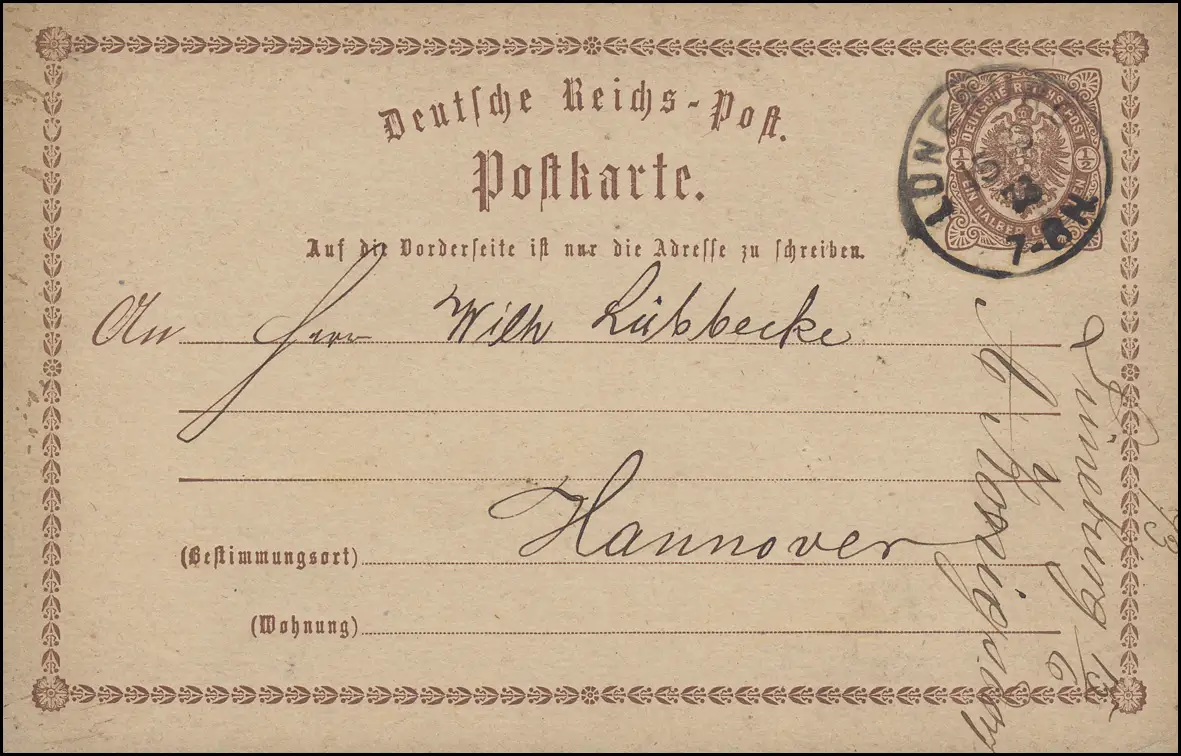 Deutsche Reichs-Post.
Postkarte.
Auf die Vorderseite ist nur die Adresse zu schreiben.
DEUTSCHE REICHS-POST
1/2
1/2
EIN HALBER GROSCHEN
LÜNEBURG
7-8 N
An Herr Wilh Lübbecke
(Bestimmungsort) Hannover
(Wohnung)
Lüneburg 13/6 73